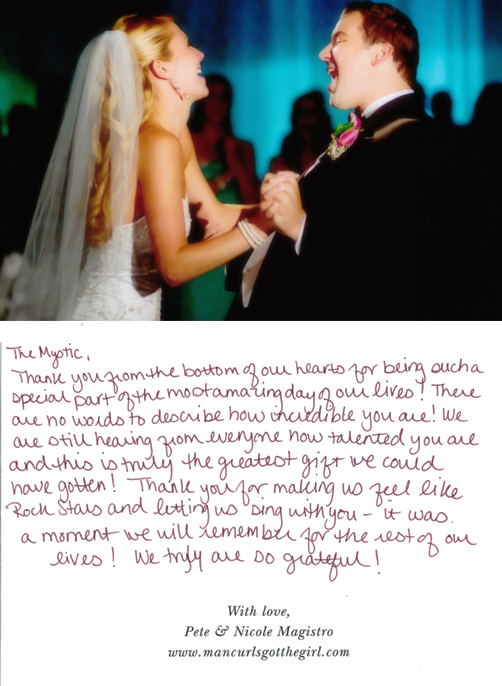 The Mystic,
Thank you from the bottom of our hearts for being such a
special part of the most amazing day of our lives! There
are no words to describe how incredible you are! We
are still hearing from everyone how talented you are
and this is truly the greatest gift we could
have gotten! Thank you for making us feel like
Rock Stars and letting us sing with you - it was
a moment we will remember for the rest of our
lives! We truly are so grateful!
With love,
Pete & Nicole Magistro
www.mancurlsgotthegirl.com